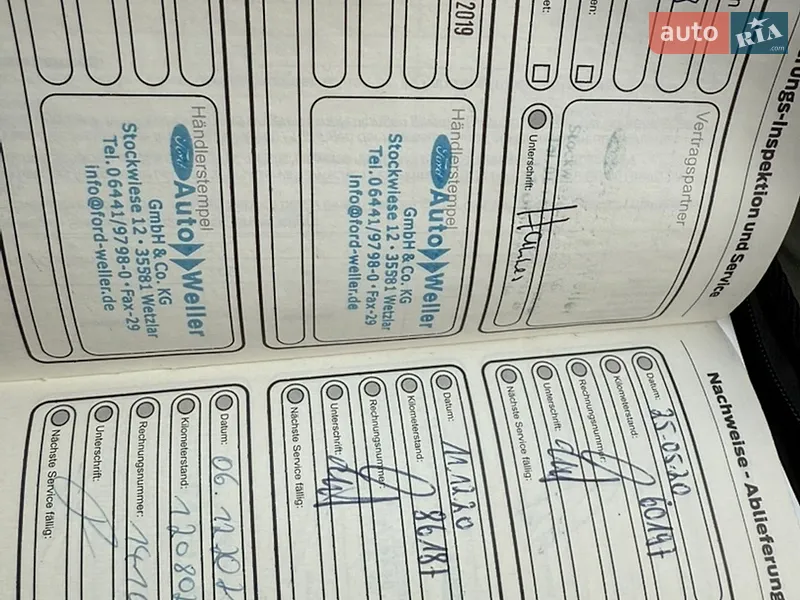 auto RIA .com
2019
Vertragspartner
Unterschrift:
Händlerstempel
Ford Auto Weller
GmbH & Co. KG
Stockwiese 12 · 35581 Wetzlar
Tel. 06441/9798-0 · Fax-29
info@ford-weller.de
Händlerstempel
Ford Auto Weller
GmbH & Co. KG
Stockwiese 12 · 35581 Wetzlar
Tel. 06441/9798-0 · Fax-29
info@ford-weller.de
-Inspektion und Service
Nachweise - Ablieferung
Datum: 25-05-20
Kilometerstand: 60197
Rechnungsnummer:
Unterschrift:
Nächste Service fällig:
Datum: 11.12.20
Kilometerstand: 86187
Rechnungsnummer:
Unterschrift:
Nächste Service fällig:
Datum: 06.12.202
Kilometerstand: 120802
Rechnungsnummer:
Unterschrift:
Nächste Service fällig: